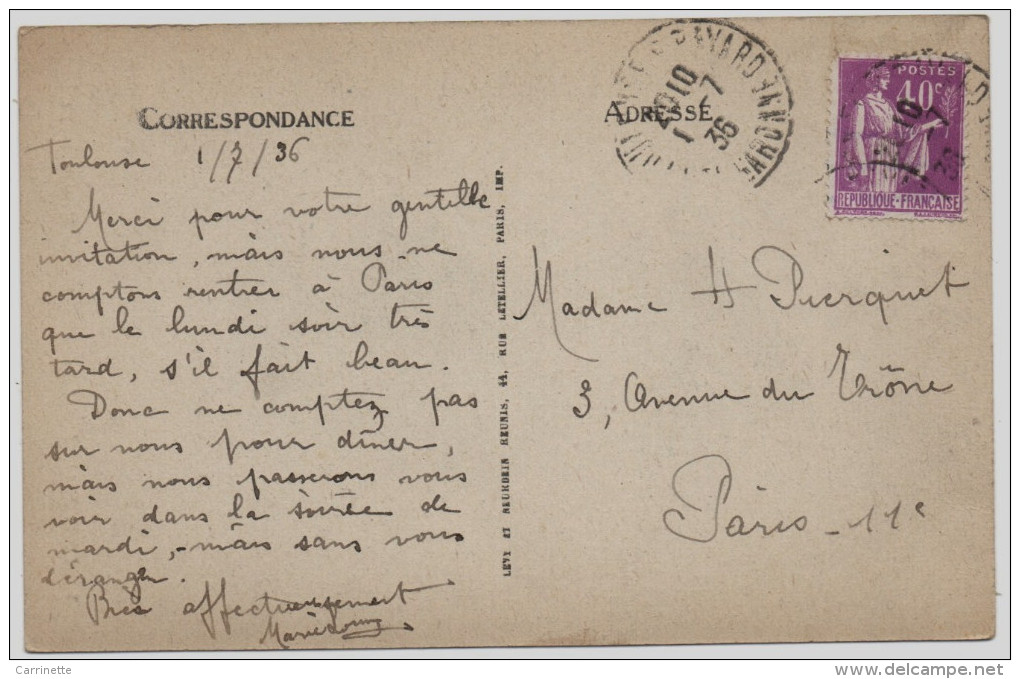 CORRESPONDANCE
Toulouse 1/7/36
Merci pour votre gentille
invitation, mais nous ne
comptons rentrer à Paris
que le lundi soir très
tard, s'il fait beau.
Donc ne comptez pas
sur nous pour dîner,
mais nous passerons vous
voir dans la soirée de
mardi, - mais sans vous
déranger.
Bien affectueusement
LEVY ET NEURDEIN REUNIS, 44, RUE LETELLIER, PARIS, IMP.
ADRESSE
BAYARD
20 10
1 - 7
36
POSTES
40c
RÉPUBLIQUE-FRANÇAISE
Madame H Pierquet
3, Avenue du Trône
Paris - 11e
Carrinette
http://www.delcampe.net